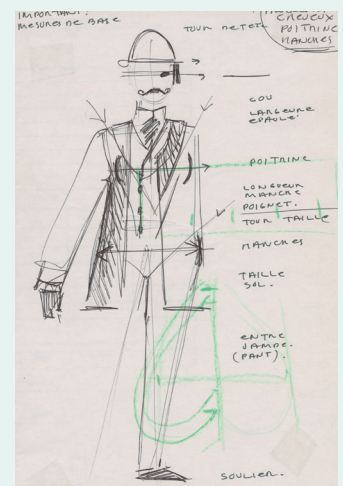 IMPORTANT:
MESURES DE BASE
TOUR DE TETE
CHEVEUX
POITRINE
HANCHES
COU
LARGEURE
EPAULE
POITRINE
LONGUEUR
MANCHE
POIGNET.
TOUR TAILLE
HANCHES
TAILLE
SOL.
ENTRE
JAMBE.
(PANT).
SOULIER.